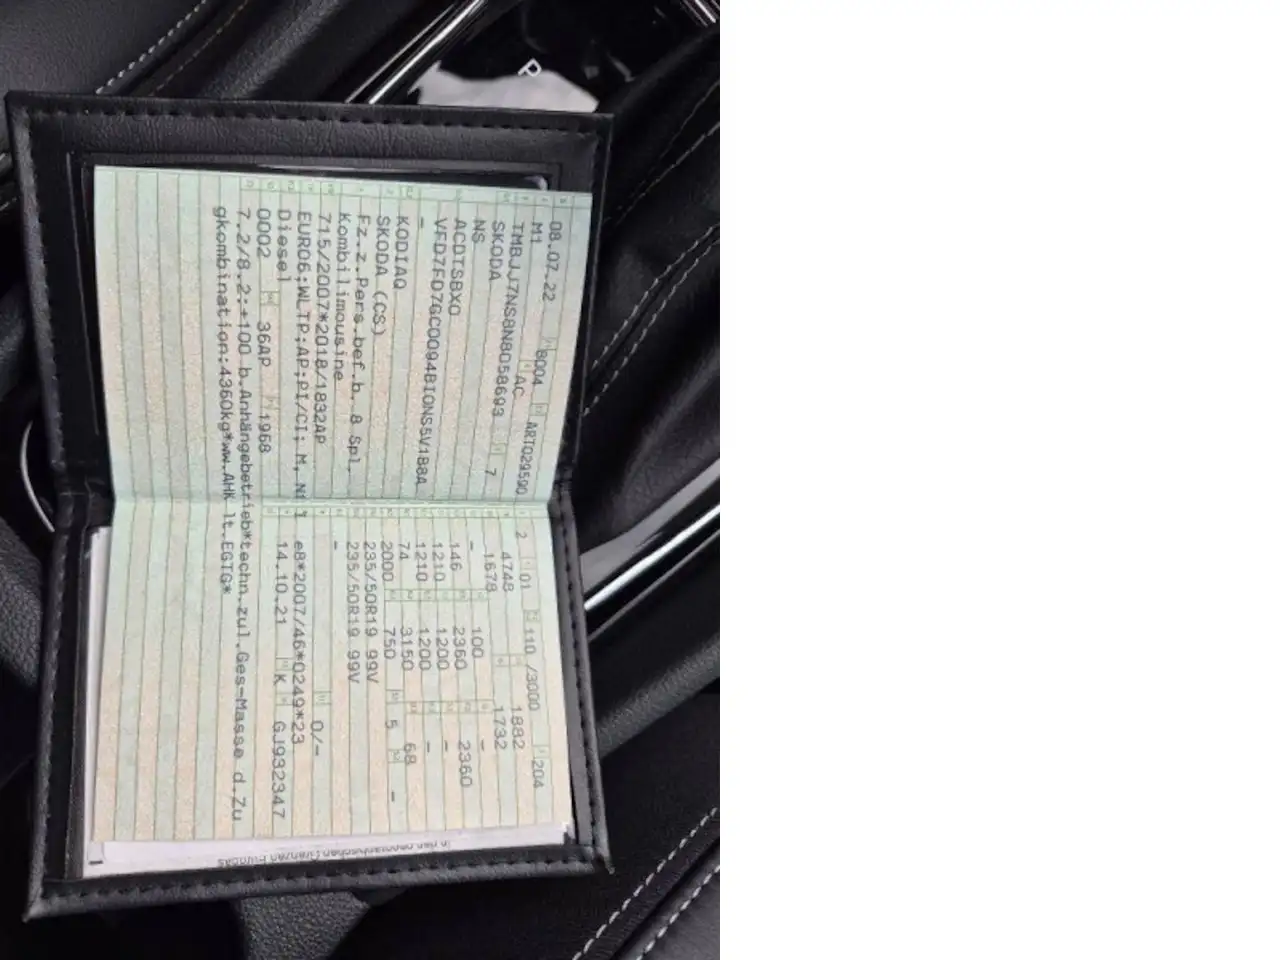 P
08.07.22 8004 ART029590
M1 AC
TMBJJ7NS8N8058693 7
SKODA
NS
ACDTSBX0
VFD7FD7GC0094BIONS5V1B8A
-
KODIAQ
SKODA (CS)
Fz.z.Pers.bef.b. 8 Spl.
Kombilimousine
715/2007*2018/1832AP
EURO6;WLTP;AP;PI/CI; M, N1 I
Diesel
0002 36AP 1968
2 01 110 /3000 204
4748 1882
1678 1732
- 100 -
146 2360 2360
1210 1200 -
1210 1200 -
74 3150 68
2000 750 5 -
235/50R19 99V
235/50R19 99V
-
0/-
e8*2007/46*0249*23
14.10.21 K GJ932347
7.2/8.2:+100 b.Anhängebetrieb*techn.zul.Ges-Masse d.Zu
gkombination:4360kg*ww.AHK lt.EGTG*
in den geographischen Grenzen Europas